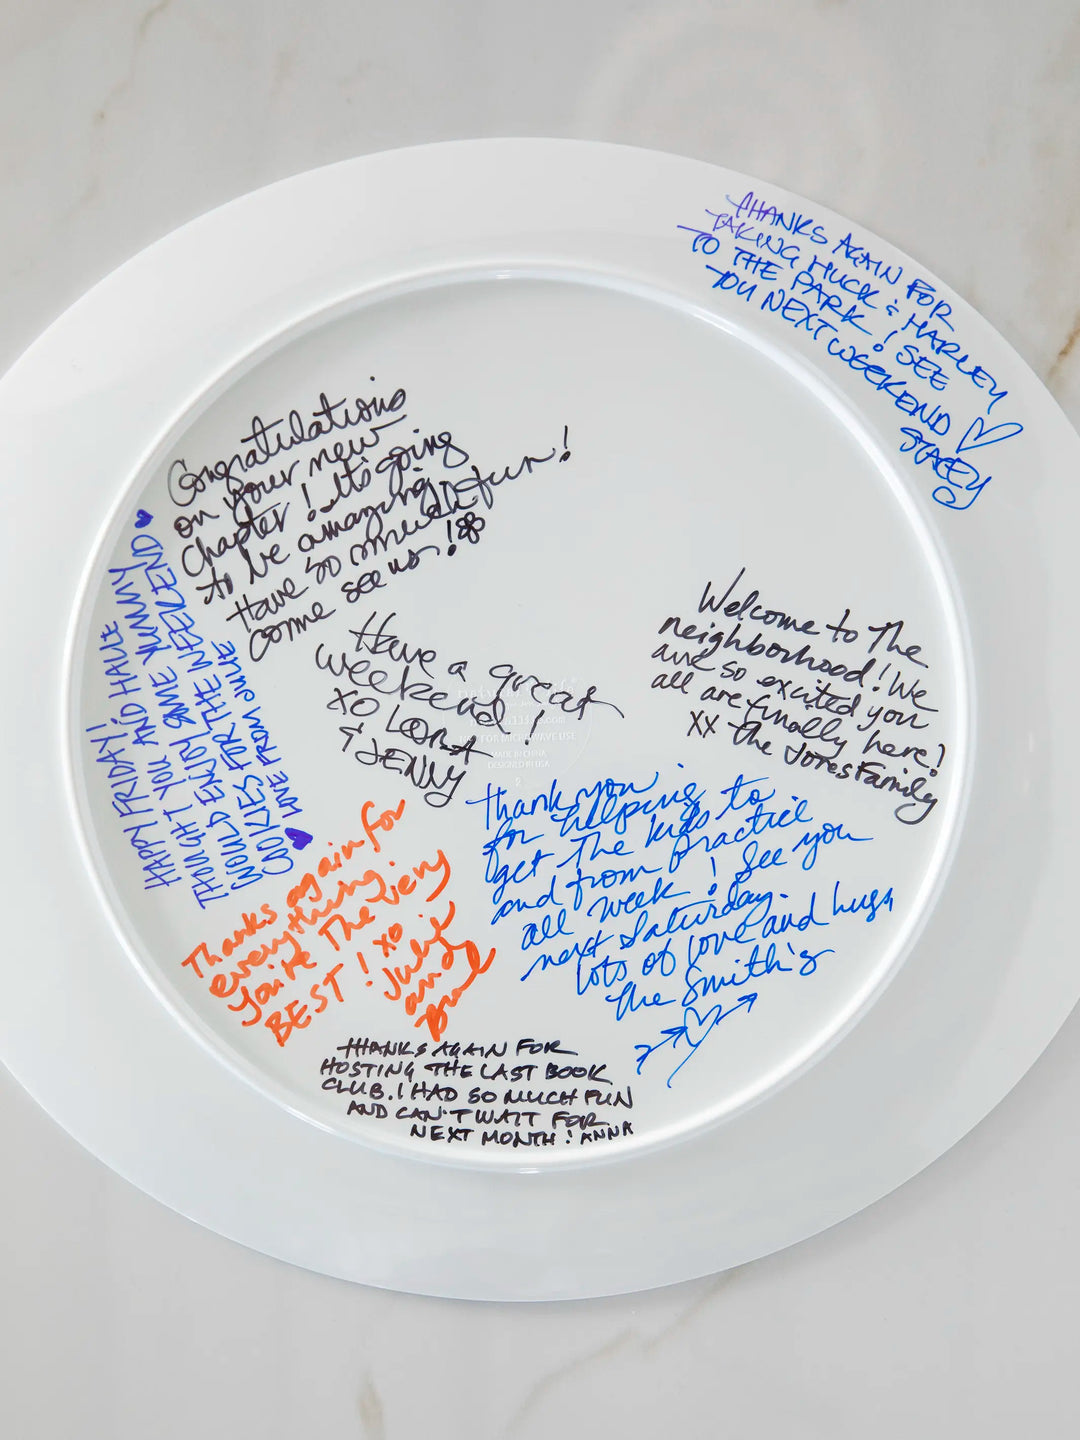 THANKS AGAIN FOR
TAKING HUCK & HARLEY
TO THE PARK! SEE
YOU NEXT WEEKEND ♡
STACEY
Congratulations
on your new
chapter! It's going
to be amazing!
Have so much fun!
come see us!
HAPPY FRIDAY!
THOUGHT YOU AND HALLIE
WOULD ENJOY SOME YUMMY
COOKIES FOR THE WEEKEND ♥
♥ LOVE FROM JULIE
Have a great
weekend!
XO LORA
& JENNY
Welcome to The
neighborhood! We
are so excited you
all are finally here!
XX The Jones Family
NOT FOR MICROWAVE USE
MADE IN CHINA
DESIGNED IN USA
Thank you
for helping
get the kids to
and from practice
all week! See you
next Saturday.
lots of love and hugs,
The Smith's
Thanks again for
everything
You're The very
BEST! XO
Julie
and
THANKS AGAIN FOR
HOSTING THE LAST BOOK
CLUB. I HAD SO MUCH FUN
AND CAN'T WAIT FOR
NEXT MONTH! ANNA